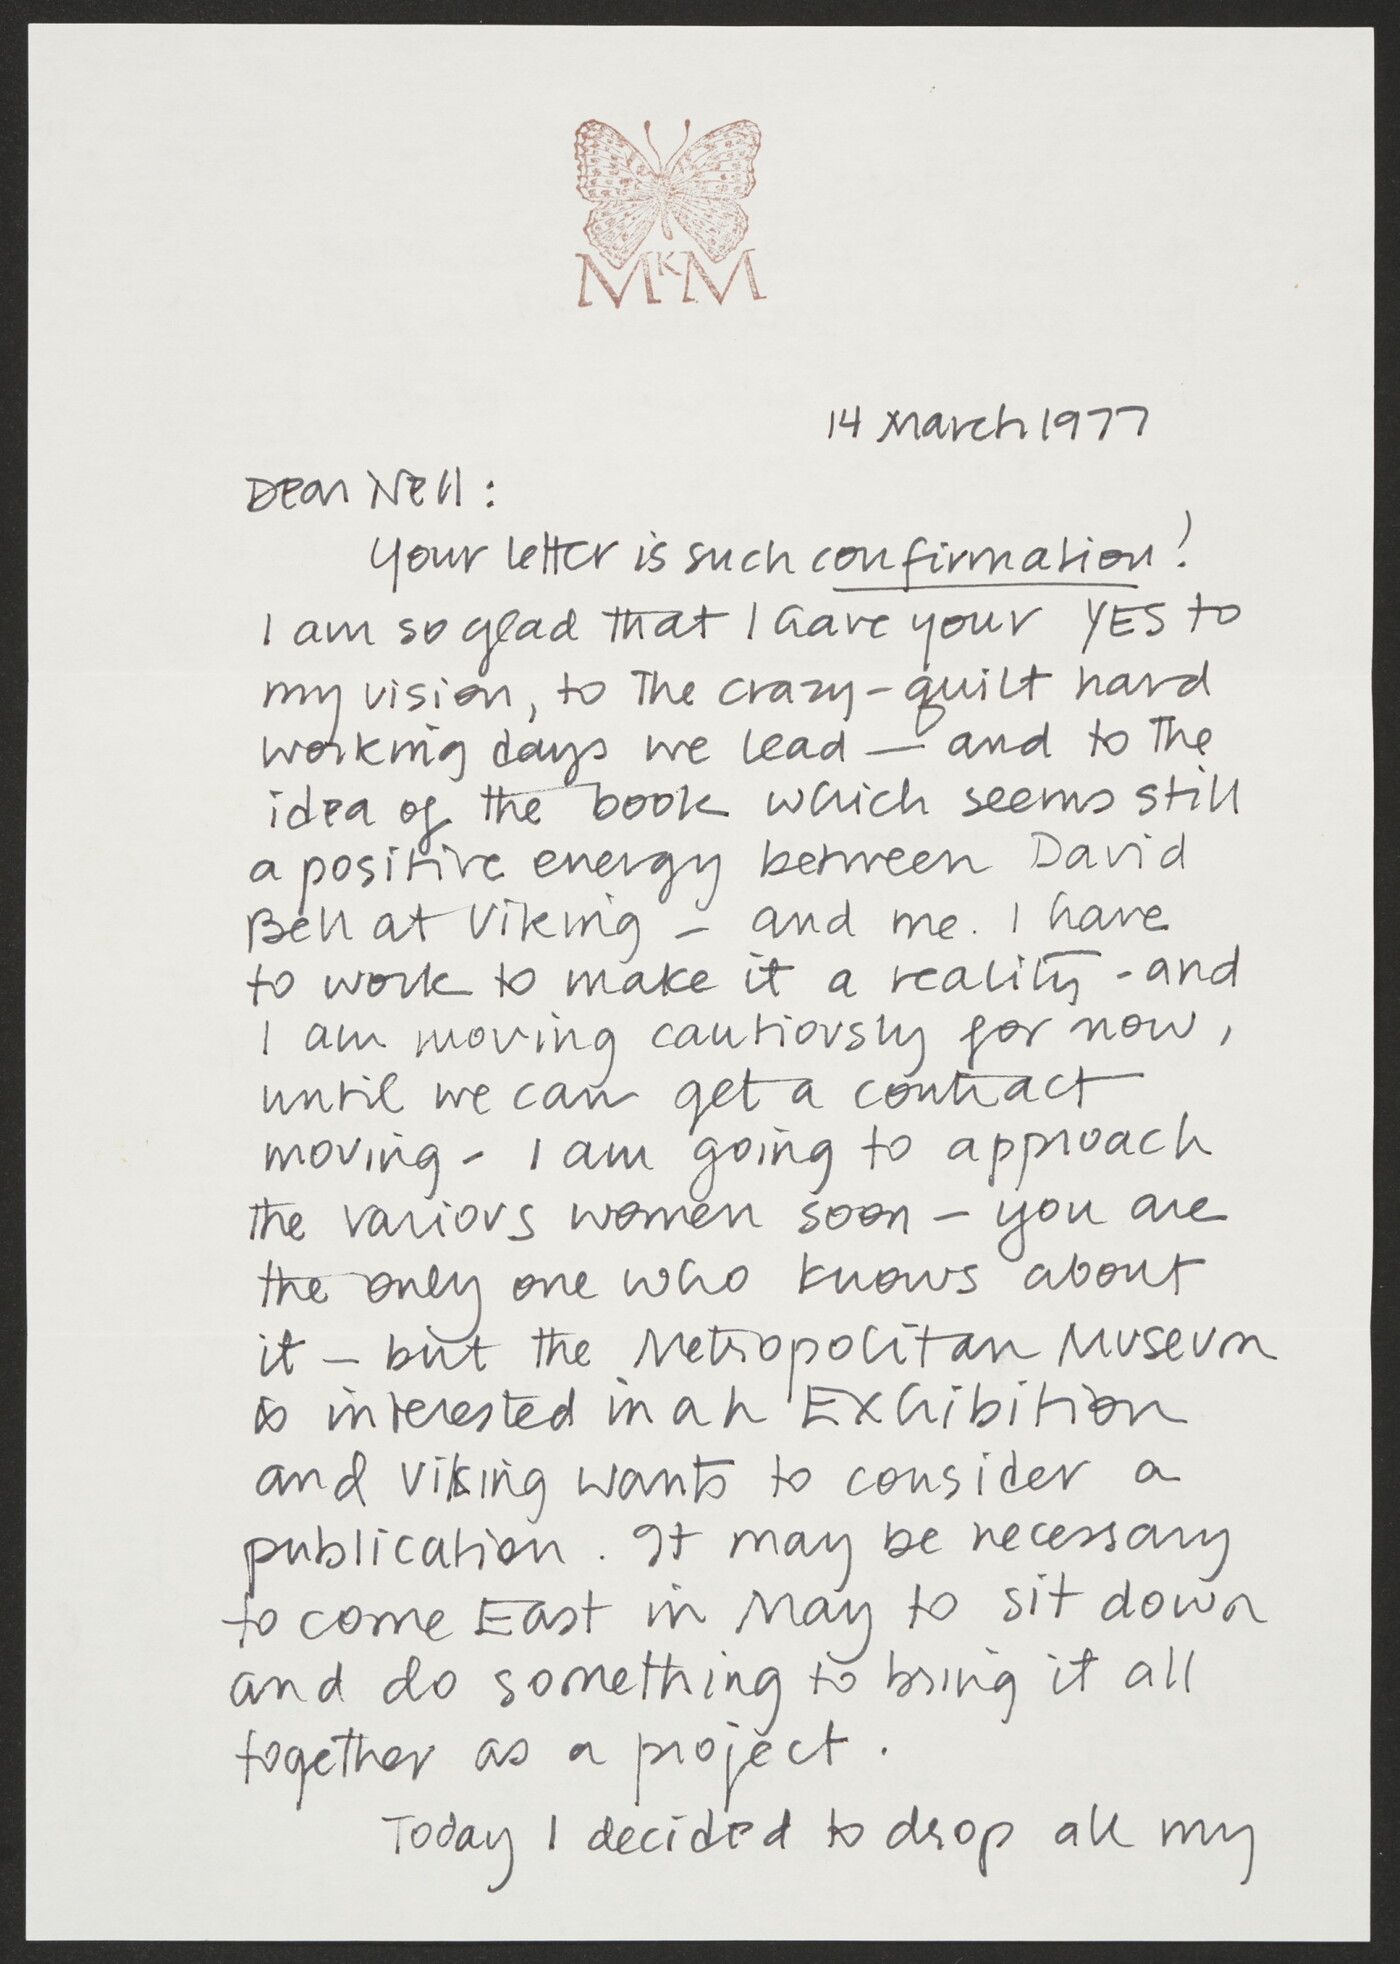 MKM
14 March 1977
Dear Nell:
Your letter is such confirmation!
I am so glad that I have your YES to
my vision, to the crazy-quilt hard
working days we lead — and to the
idea of the book which seems still
a positive energy between David
Bell at Viking - and me. I have
to work to make it a reality - and
I am moving cautiously for now,
until we can get a contract
moving - I am going to approach
the various women soon - you are
the only one who knows about
it - but the Metropolitan Museum
is interested in an Exhibition
and Viking wants to consider a
publication. It may be necessary
to come East in May to sit down
and do something to bring it all
together as a project.
Today I decided to drop all my